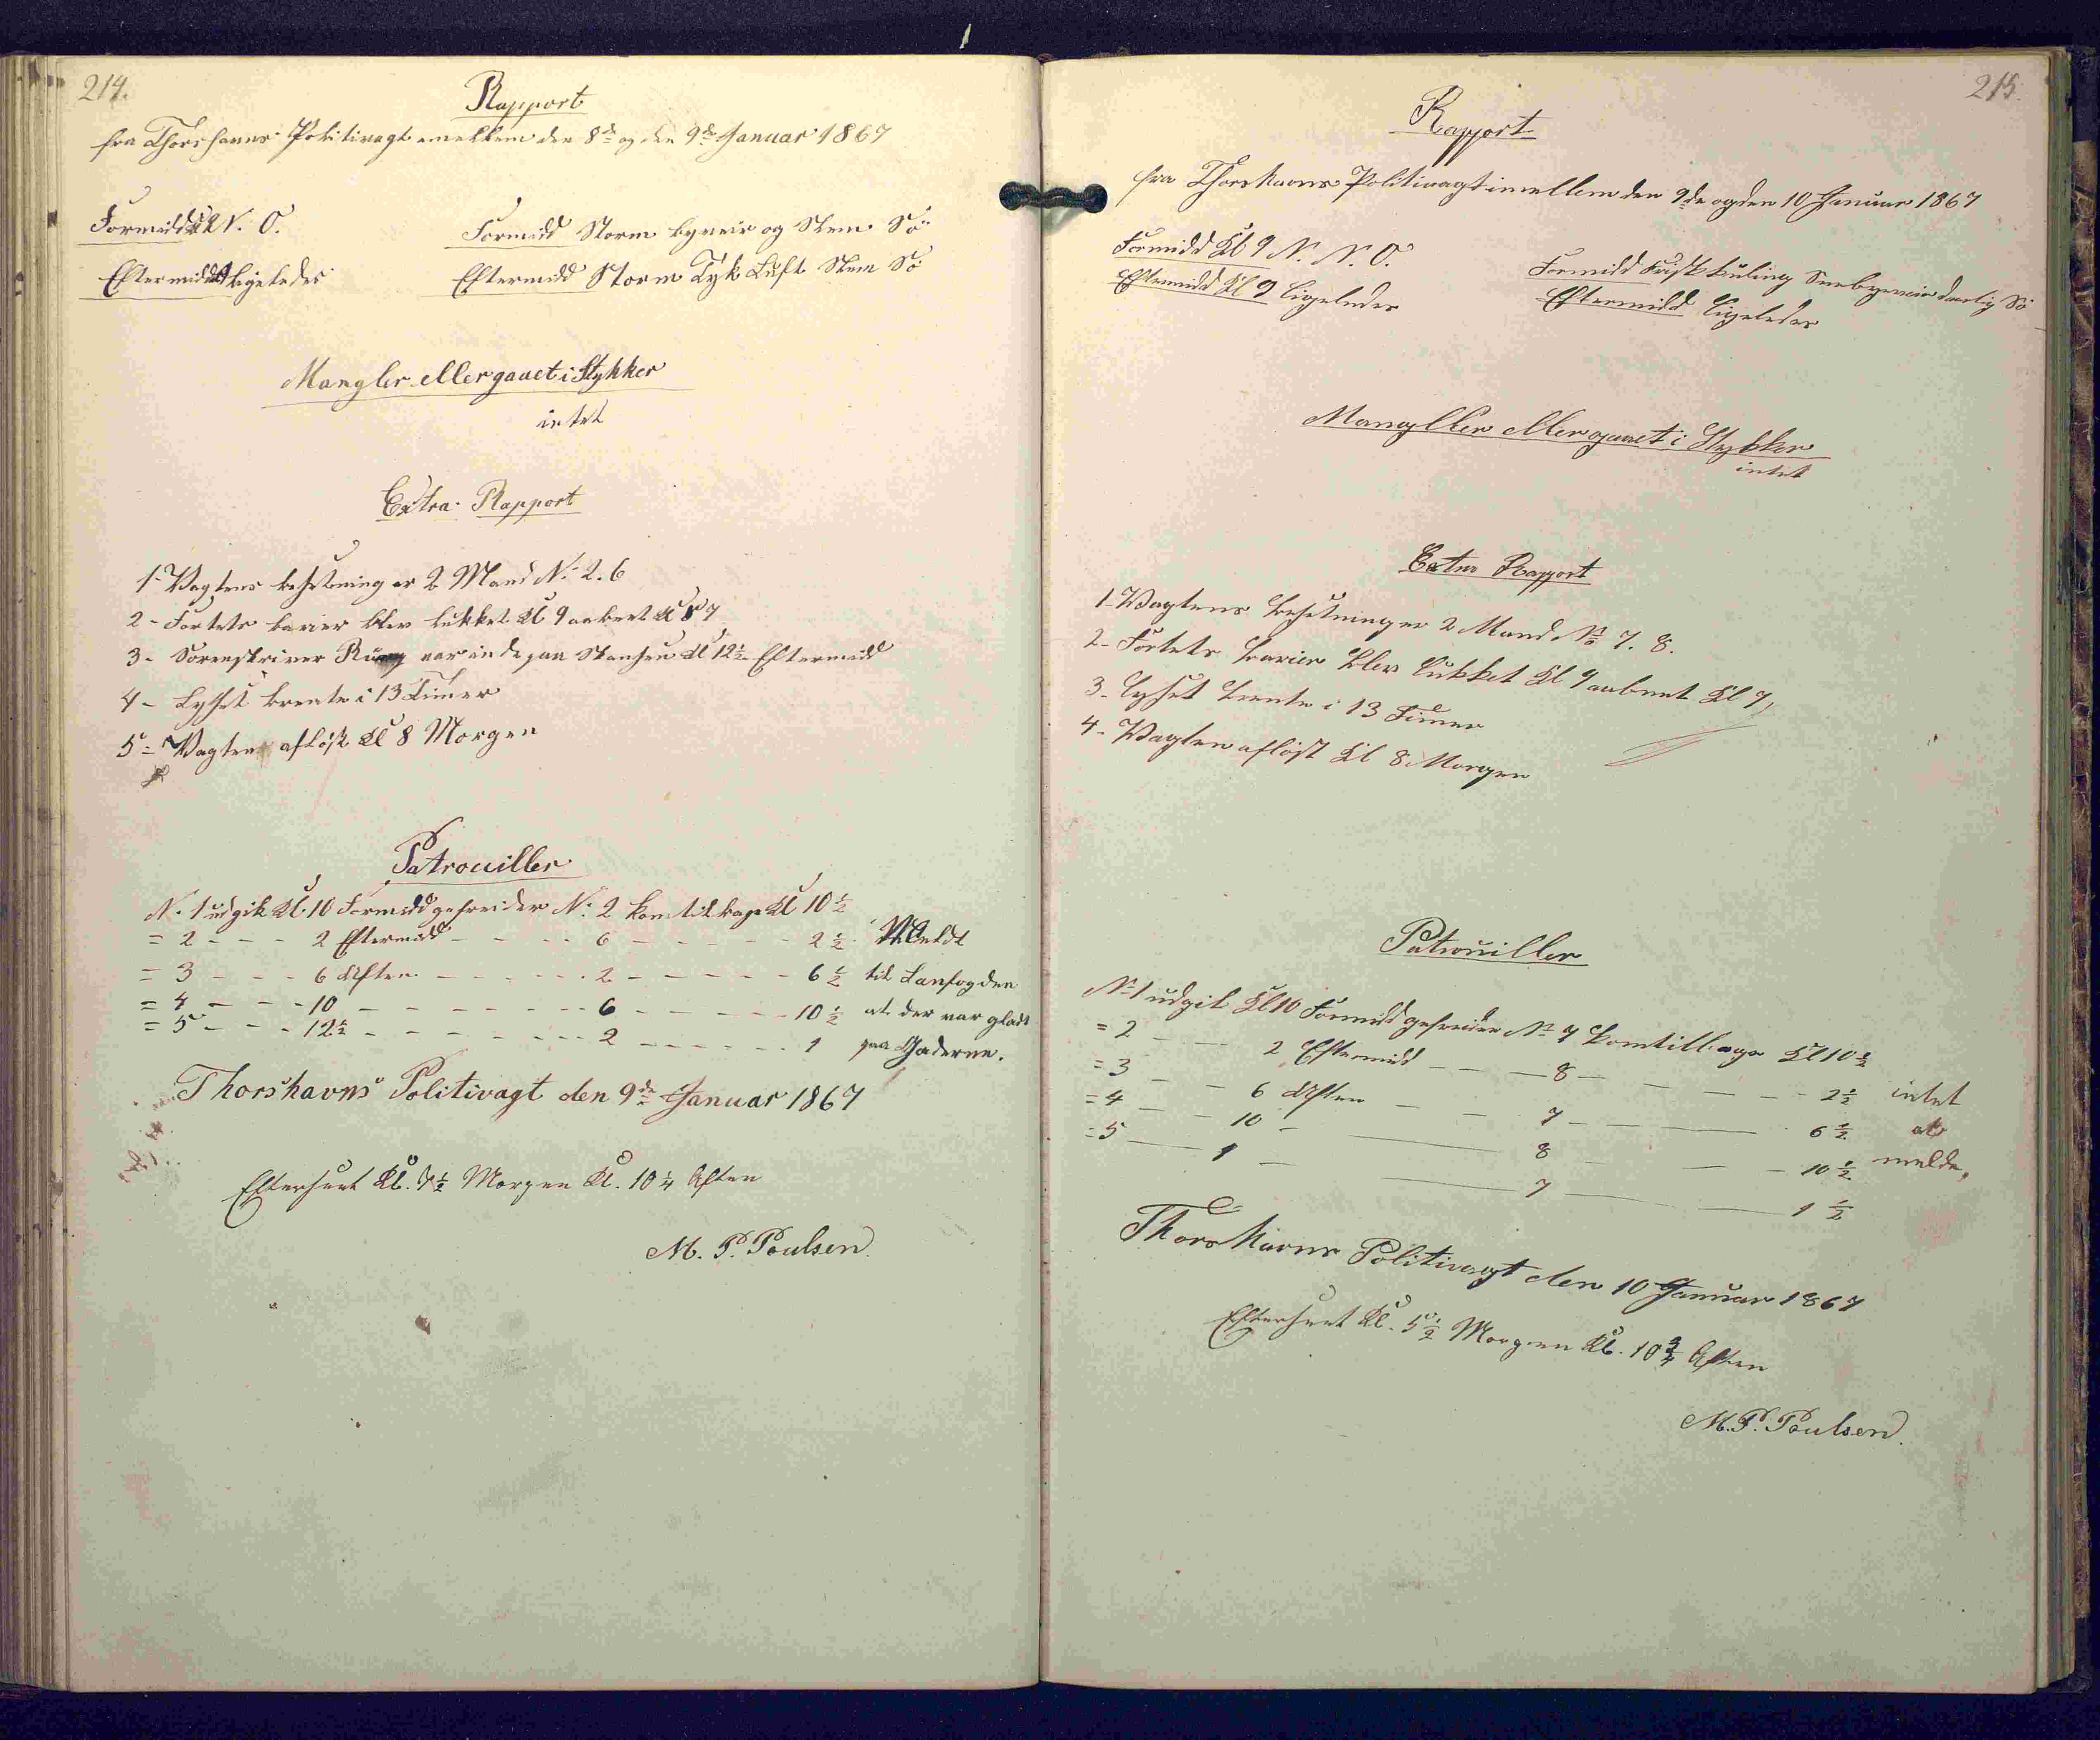 214.
Rapport
fra Thorshavns Politivagt emellem den 8de og den 9de Januar 1867
Formidd Kl 9 N. O.
Formidd Storm byveir og Slem Sö
Eftermidd Kl 9 ligeledes
Eftermidd Storm Tyk Luft Slem Sö
Mangler eller gaaet i Stykker
intet
Extra Rapport
1- Vagtens besetning er 2 Mand No 2. 6
2- Fortets barier blev lukket Kl 9 aabnet Kl 7
3- Sorenskriver var inde paa Skansen Kl 12½ Eftermidd
4- Lyset brente i 13 Timer
5= Vagten aflöst Kl 8 Morgen
Patrouiller
No 1 udgik Kl. 10 Formidd gefreider No 2 kom tilbage Kl 10½
= 2 - - - 2 Eftermidd - - - - 6 - - - - - 2½ Meldt
= 3 - - - 6 Aften - - - - 2 - - - - - 6½ til Lanfogden
= 4 - - - 10 - - - - - - 6 - - - - - 10½ at der var glat
= 5 - - - 12½ - - - - - - 2 - - - - - 1 paa Gaderne.
Thorshavns Politivagt den 9de Januar 1867
Efterseet Kl. 7½ Morgen Kl. 10¼ Aften
M. P. Poulsen.
215.
Rapport
fra Thorshavns Politivagt imellem den 9de og den 10 Januar 1867
Formidd Kl 9 N. N. O.
Formidd Frisk Kuling Sneebyeveir daarlig Sö
Eftermidd Kl 9 ligeledes
Eftermidd ligeledes
Mangller eller gaaet i Stykker
intet
Extra Rapport
1- Vagtens besetning er 2 Mand No 7. 8.
2- Fortets barier blev lukket Kl 9 aabnet Kl 7,
3- Lyset brente i 13 Timer
4- Vagten aflöst Kl 8 Morgen
Patrouiller
No 1 udgik Kl 10 Formidd gefreider No 7 kom tilbage Kl 10½
= 2 - - 2 Eftermidd - - - 8 - - - - 2½ intet
= 3 - - 6 Aften - - 7 - - - 6½ at
= 4 - - 10 - - 8 - - - 10½ melde,
= 5 - - 1 - - 7 - - - 1½
Thorshavns Politivagt den 10 Januar 1867
Efterseet Kl. 5½ Morgen Kl. 10¾ Aften
M. P. Poulsen.